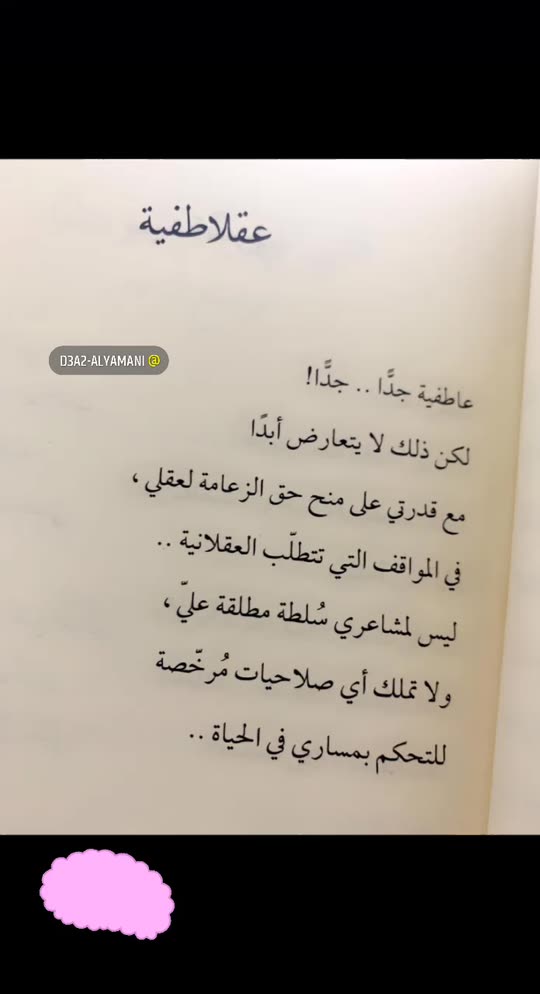 عقلاطفية
@ D3A2-ALYAMANI
عاطفية جدًّا .. جدًّا!
لكن ذلك لا يتعارض أبدًا
مع قدرتي على منح حق الزعامة لعقلي ،
في المواقف التي تتطلّب العقلانية ..
ليس لمشاعري سُلطة مطلقة عليّ ،
ولا تملك أي صلاحيات مُرخّصة
للتحكم بمساري في الحياة ..